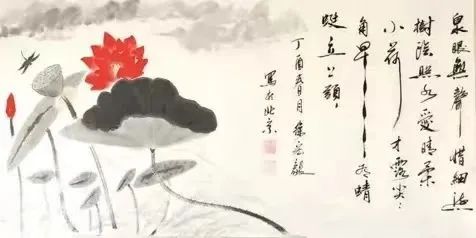 泉眼無聲惜細流
樹陰照水愛晴柔
小荷才露尖尖
角早有蜻
蜓立上頭
丁酉 月徐 毅
寫於北京